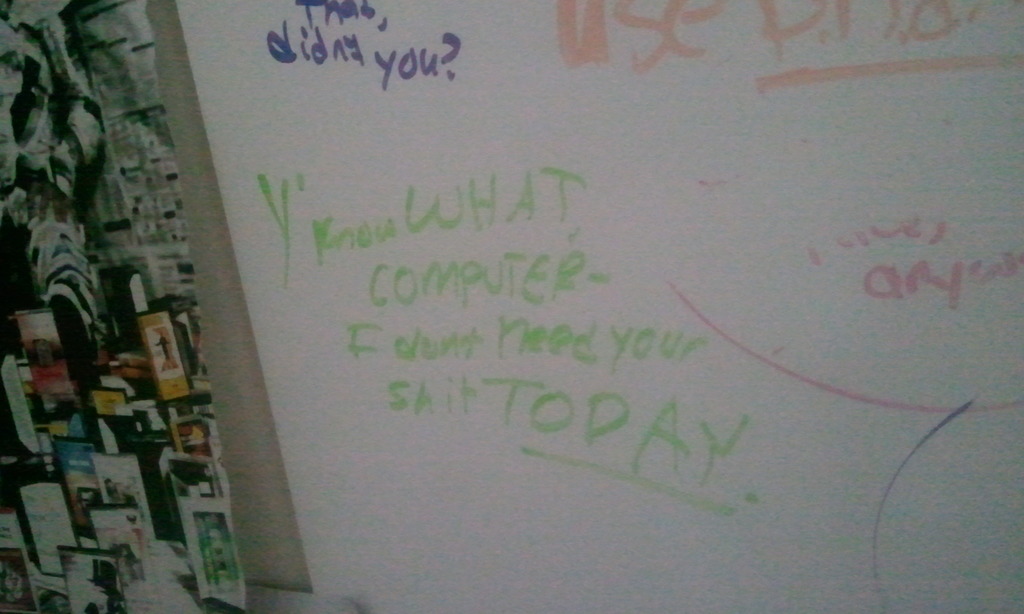 that,
didn't
you?
use
Y' know WHAT,
COMPUTER-
I dont need your
shit TODAY.